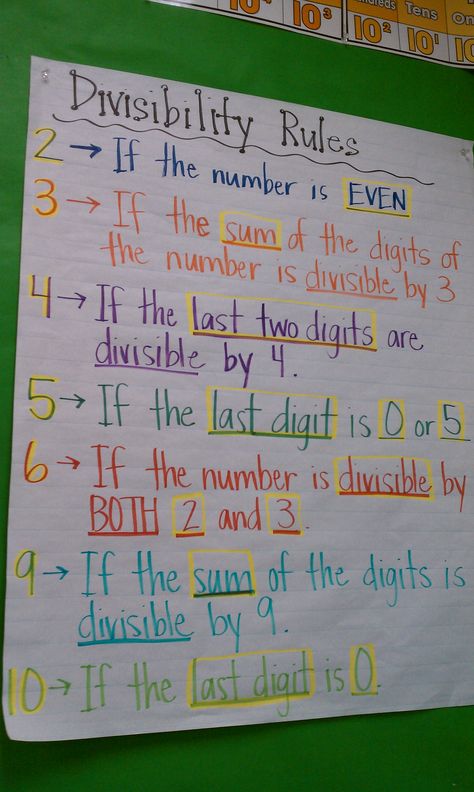 10³
10²
10¹
10
Tens
On
Divisibility Rules
2 → If the number is EVEN
3 → If the sum of the digits of
the number is divisible by 3
4 → If the last two digits are
divisible by 4.
5 → If the last digit is 0 or 5
6 → If the number is divisible by
BOTH 2 and 3.
9 → If the sum of the digits is
divisible by 9.
10 → If the last digit is 0.